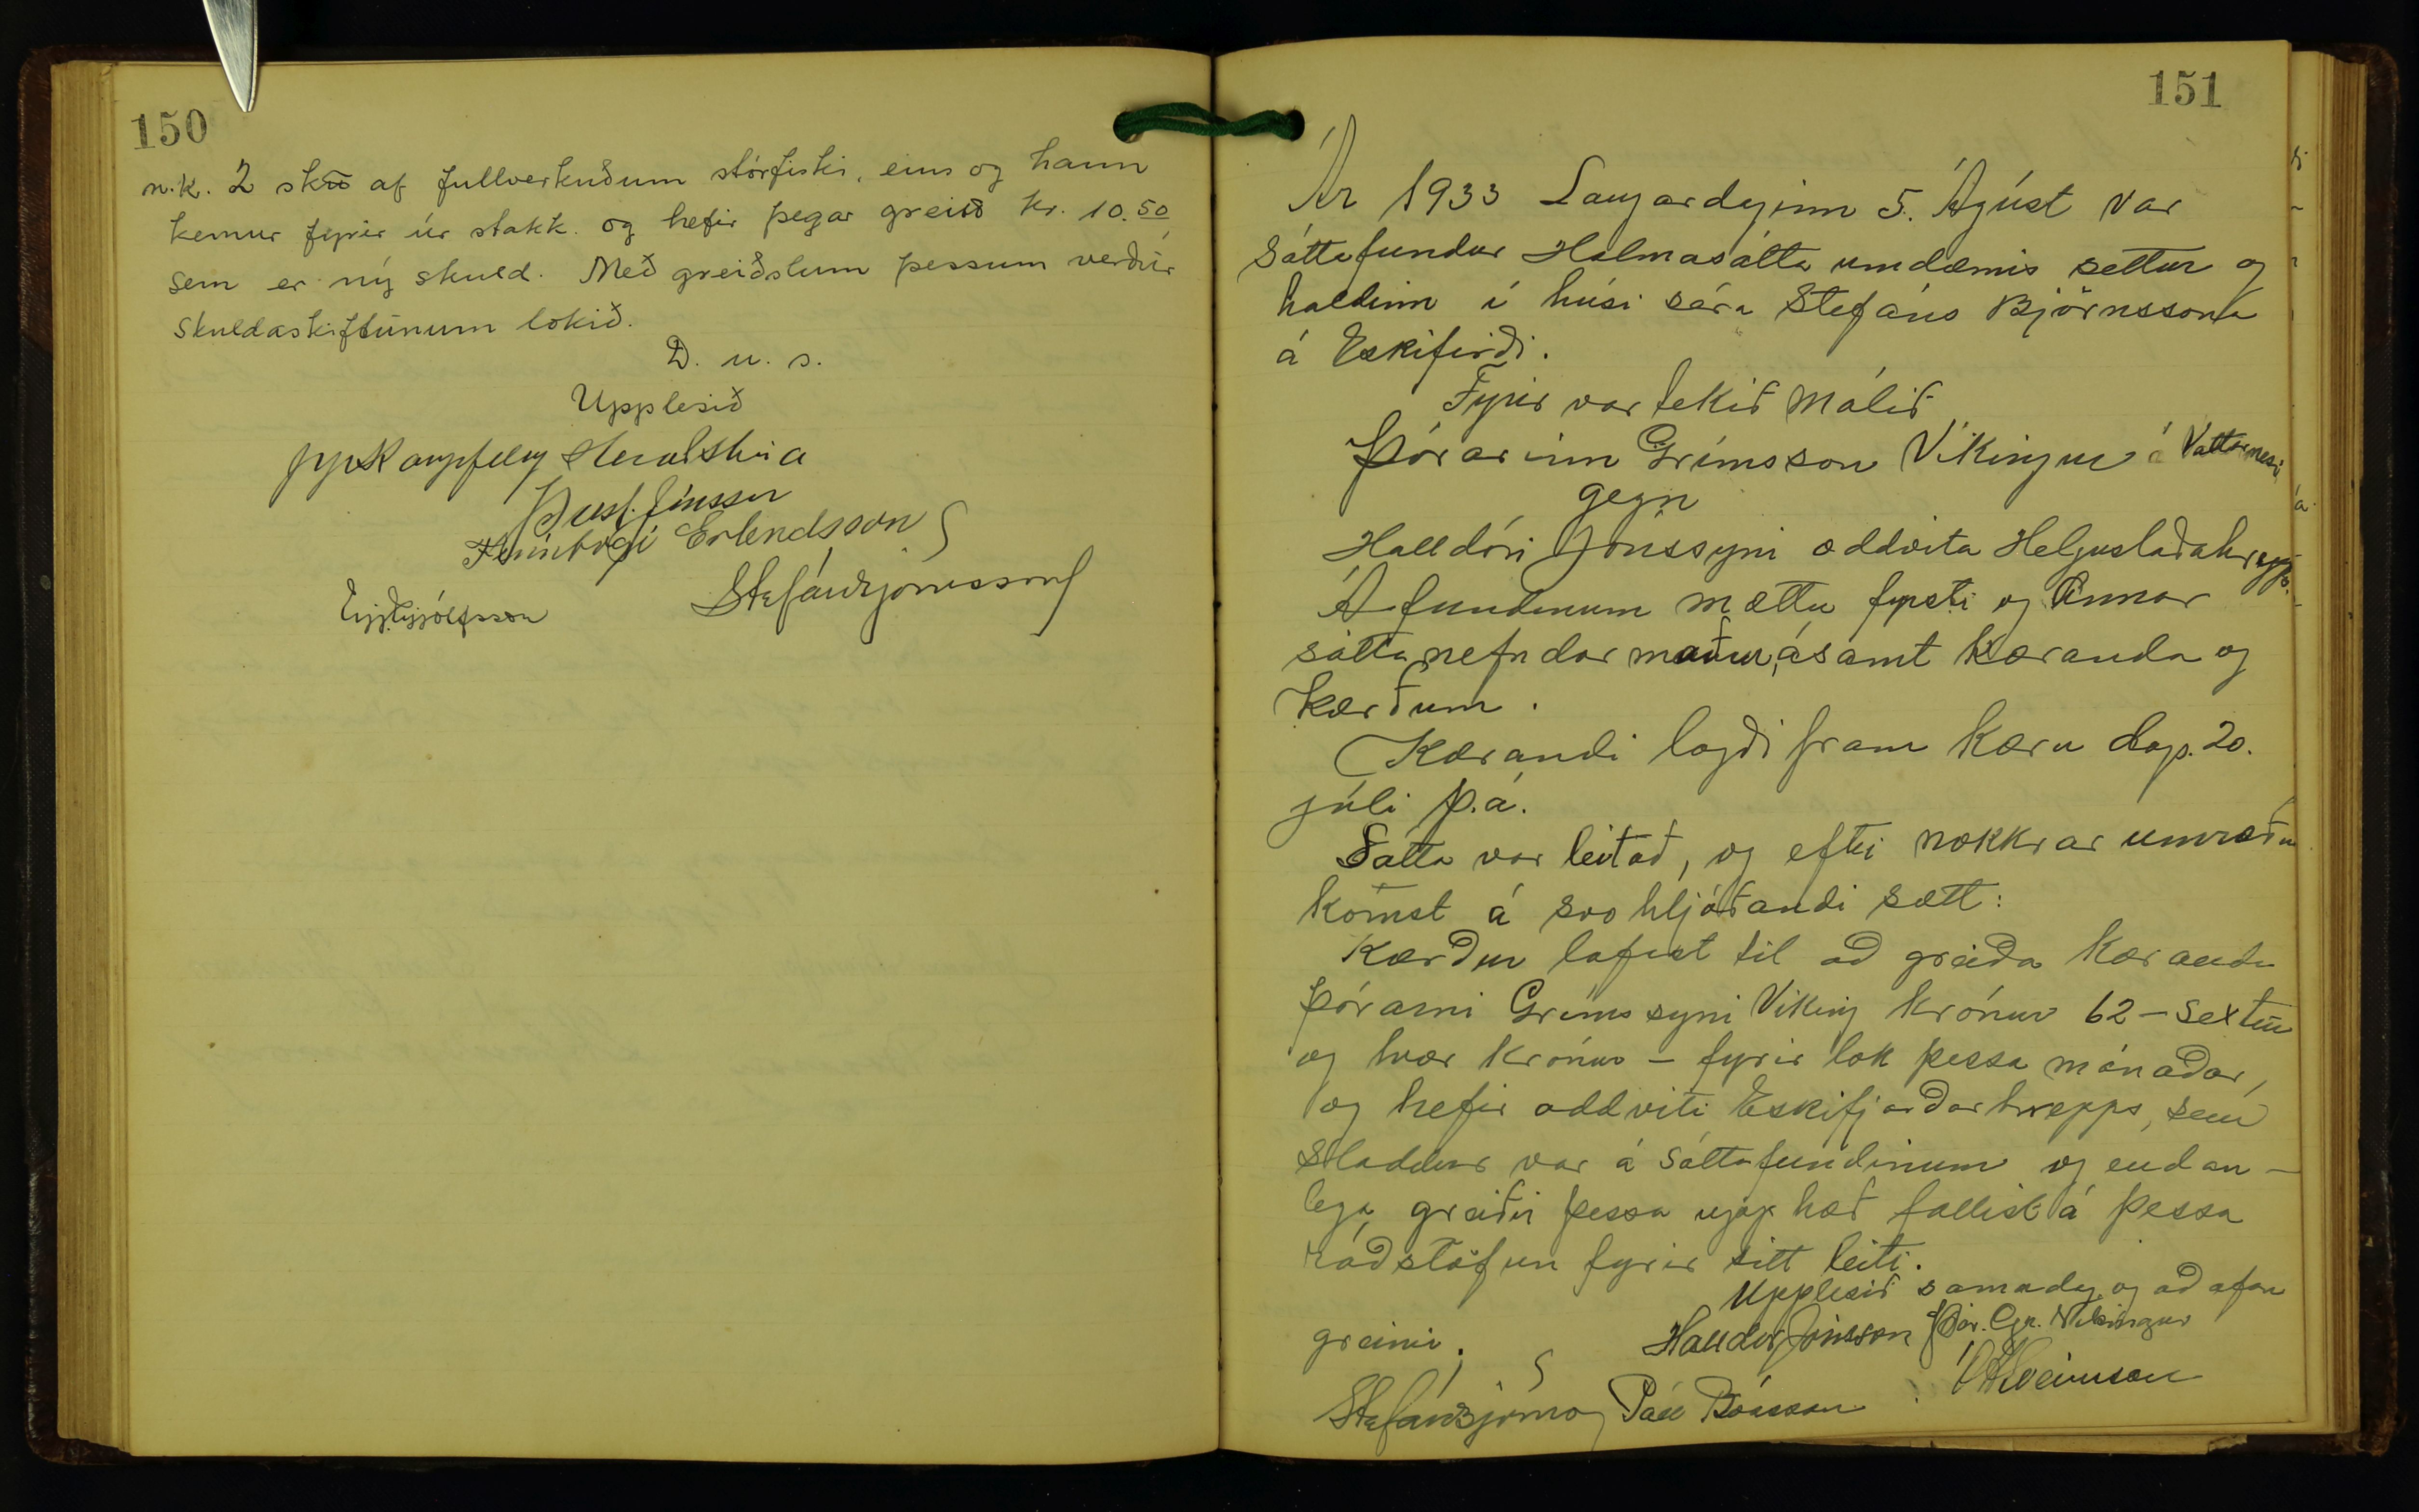 150
n.k. 2 skü af fullverkuðum stórfiski, eins og hann
kemur fyrir úr stakk. og hefir þegar greitt kr. 10.50
sem er ný skuld. Með greiðslum þessum verður
skuldaskiftunum lokið.
D. u. s.
Upplesið
Finnbogi Erlendsson
Stefán Björnsson
151
Ár 1933 Laugardaginn 5. Ágúst var
Sáttafundur Hólmasátta umdæmis settur og
haldinn í húsi séra Stefáns Björnssona
á Eskifirði.
Fyrir var tekið málið
Þórarinn Grímsson Víkingur á Vattarnesi
gegn
Halldóri Jónssyni oddvita Helgustaðahrepps.
Á fundinum mættu fyrsti og Annar
sáttanefndarmaður, ásamt kæranda og
kærðum.
Kærandi lagði fram kæru dags. 20.
júlí þ.á.
Sátta var leitað, og eftir nokkrar umræður
komst á svohljóðandi sætt:
Kærður lofast til að greiða kæranda
Þórarni Grímssyni Víking krónur 62 - sextíu
og tvær krónur - fyrir lok þessa mánaðar,
og hefir oddviti Eskifjarðarhrepps, sem
staddur var á sáttafundinum og endan-
lega greiðir þessa upphæð fallist á þessa
ráðstöfun fyrir sitt leiti.
Upplesið samadag og að ofan
greinir.
Halldór Jónsson Þór. Gr. Víkingur
Stefán Björnsson Páll Bóasson